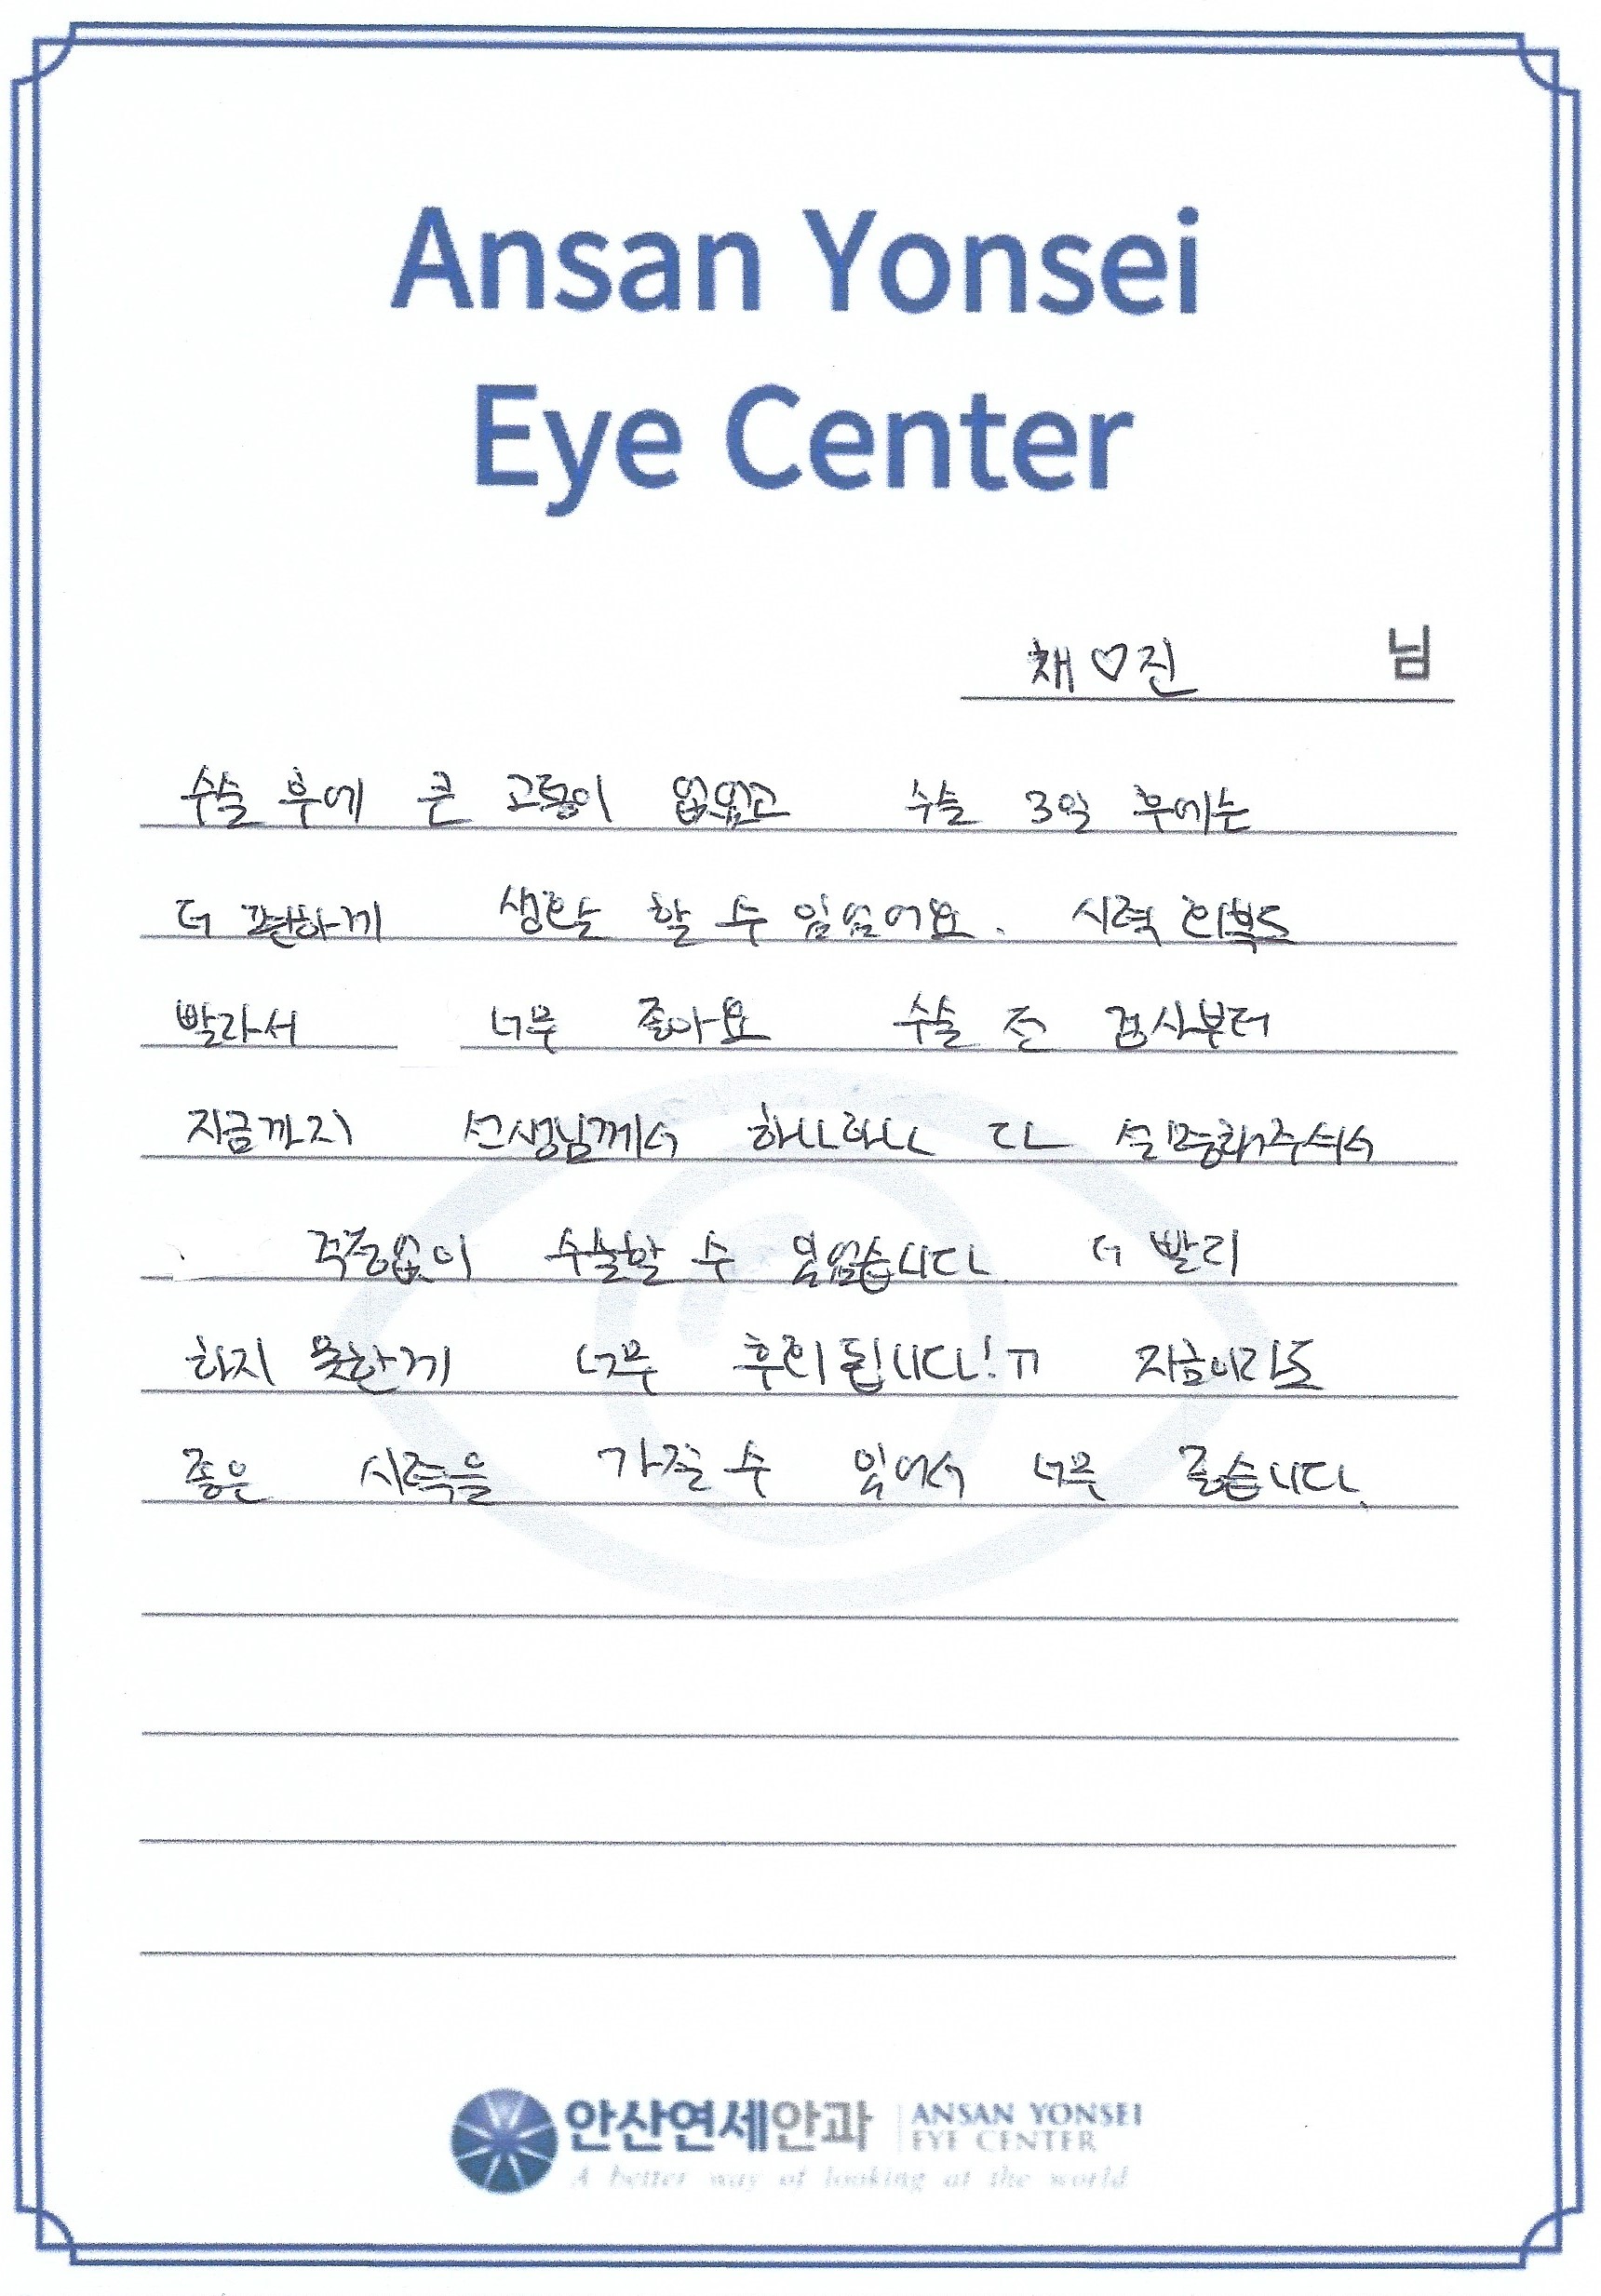 Ansan Yonsei
Eye Center
채♡진 님
수술 후에 큰 고통이 없었고 수술 3일 후에는
더 편하게 생활 할 수 있었어요. 시력 회복도
빨라서 너무 좋아요 수술 전 검사부터
지금까지 선생님께서 하나하나 다 설명해주셔서
걱정없이 수술할 수 있었습니다. 더 빨리
하지 못한게 너무 후회됩니다!ㅠ 지금이라도
좋은 시력을 가질 수 있어서 너무 좋습니다.
안산연세안과 ANSAN YONSEI
EYE CENTER
A better way of looking at the world